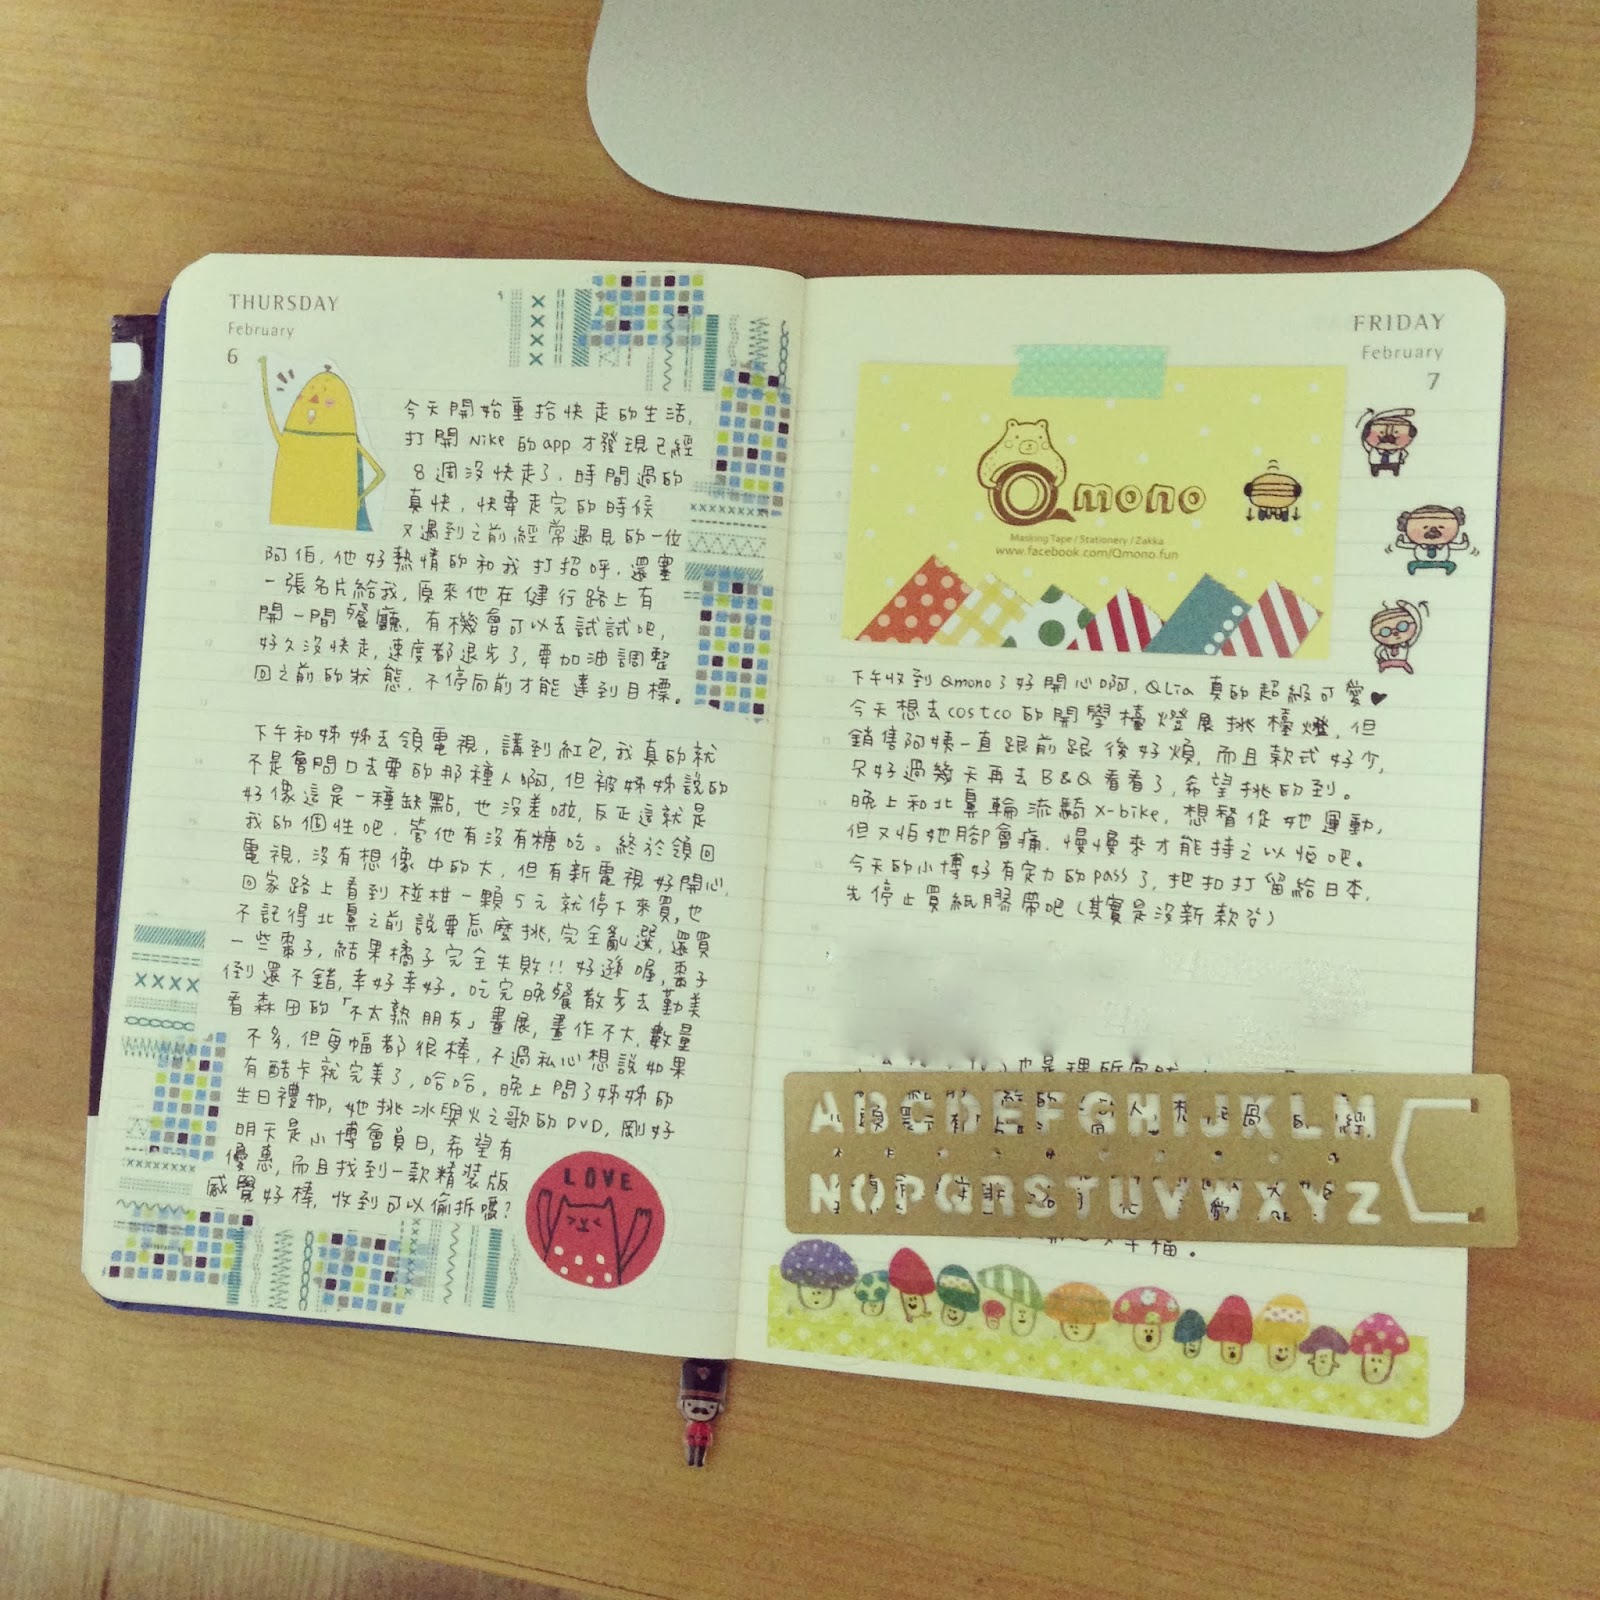 THURSDAY
February
6
今天開始重拾快走的生活,
打開Nike的app才發現已經
8週沒快走了,時間過的
真快,快要走完的時候
又遇到之前經常遇見的一位
阿伯,他好熱情的和我打招呼,還塞
一張名片給我,原來他在健行路上有
開一間餐廳,有機會可以去試試吧,
好久沒快走,速度都退步了,要加油調整
回之前的狀態,不停向前才能達到目標。
下午和姊姊去領電視,講到紅包,我真的就
不是會開口去要的那種人啊,但被姊姊說的
好像這是一種缺點,也沒差啦,反正這就是
我的個性吧,管他有沒有糖吃。終於領回
電視,沒有想像中的大,但有新電視好開心,
回家路上看到椪柑一顆5元就停下來買,也
不記得北鼻之前說要怎麼挑,完全亂選,還買
一些棗子,結果橘子完全失敗!!好遜喔,棗子
倒還不錯,幸好幸好。吃完晚餐散步去勤美
看森田的「不太熟朋友」畫展,畫作不大,數量
不多,但每幅都很棒,不過私心想說如果
有酷卡就完美了,哈哈。晚上問了姊姊的
生日禮物,她挑冰與火之歌的DVD,剛好
明天是小博會員日,希望有
優惠,而且找到一款精裝版
感覺好棒,收到可以偷拆嗎?
LOVE
FRIDAY
February
7
Qmono
Masking Tape / Stationery / Zakka
www.facebook.com/Qmono.fun
下午收到Qmono了好開心啊,QLia真的超級可愛♥
今天想去costco的開學檯燈展挑檯燈,但
銷售阿姨一直跟前跟後好煩,而且款式好少,
只好過幾天再去B&Q看看了,希望挑的到。
晚上和北鼻輪流騎X-bike,想督促她運動,
但又怕她腳會痛,慢慢來才能持之以恆吧。
今天的小博好有定力的pass了,把扣打留給日本,
先停止買紙膠帶吧(其實是沒新款)
也是理所
ABCDEFGHIJKLM
NOPQRSTUVWXYZ
幸福。